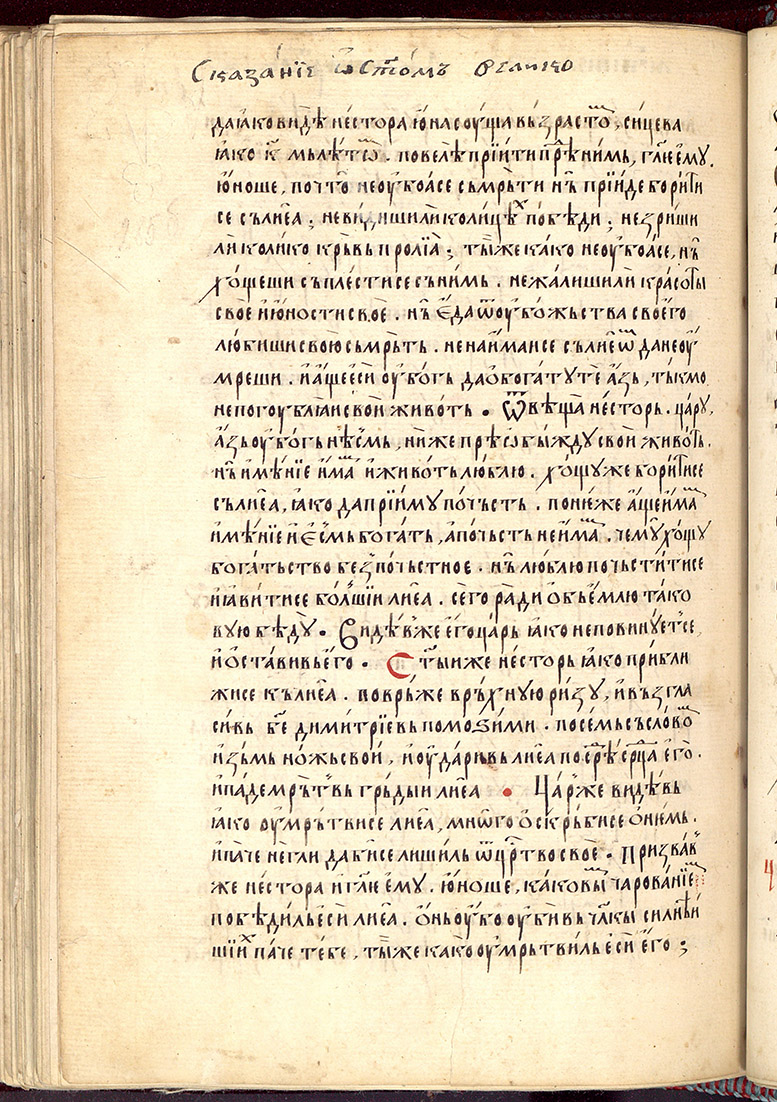 Сказанїе ѡ ст҃омъ велико
да ꙗко видѣ нестора юна соуща вьзрастѡⷨ, сицева
ꙗко к҃ мь лѣтѡⷨ. повелѣ прїити прⷣѣ нимь, гл҃ѥ ѥмꙋ.
юноше, почто не оубоасе сьмрьти нь прїиде боритⷭи
се сь лиеа; не видиши ли колицѣⷯ побѣди; не зриши
ли колико крьвь пролїа; ты же како не оубоасе, нь
хощеши сьплестисе сь нимь. не жалиши ли красоты
свое и юности свое. нь еда ѿ оубожьства своего
любиши свою сьмрьть. не наимаисе сь лиеѡⷨ да не оу
мреши. и аще еси оубогь да обогатꙋ те азь, тькмо
не погоублꙗи свой животь. Ѿвѣща несторь. царꙋ,
азь оубогь нѣсмь, ниже прѣѡбыждꙋ свой животь.
нь имѣнїе имаⷨ и животь люблю. хощꙋ же боритисе
сь лиеа, ꙗко да прїимꙋ почьсть. понеже аще имаⷨ
имѣнїе и есмь богать, а почьсть не имаⷨ. чемꙋ хощꙋ
богатьство беⷥпочьстное. нь люблю почьститисе
и ꙗвитисе болшїи лиеа. сего ради обьемлю тако
вꙋю бѣдꙋ. Видѣвже его царь ꙗко не повинꙋетсе,
и оставивь его. Ст҃ыи же несторь ꙗко прибли
жисе кь лиеа. поврьже врьхнꙋю ризꙋ, и вьзгла
сивь бж҃е димитрїевь помоѕи ми. по семь сь словоⷨ
изьмь ножь свой, и оударивь лиеа по срⷣѣ срⷣца его.
и паде мрьтвь грьдыи лиеа. Царⷤ же видѣвь
ꙗко оумрьтвисе лиеа, мнѡго оскрьбисе о немь.
и паче негли да бисе лишиль ѿ црⷭтво свое. Призваⷡ
же нестора и гл҃ѥ емꙋ. юноше, каковыⷨ чарованїеⷨ
побѣдиль еси лиеа. онь оубо оубивь чл҃кы силнѣи
шиⷯ паче тебе, ты же како оумрьтвиль еси его;